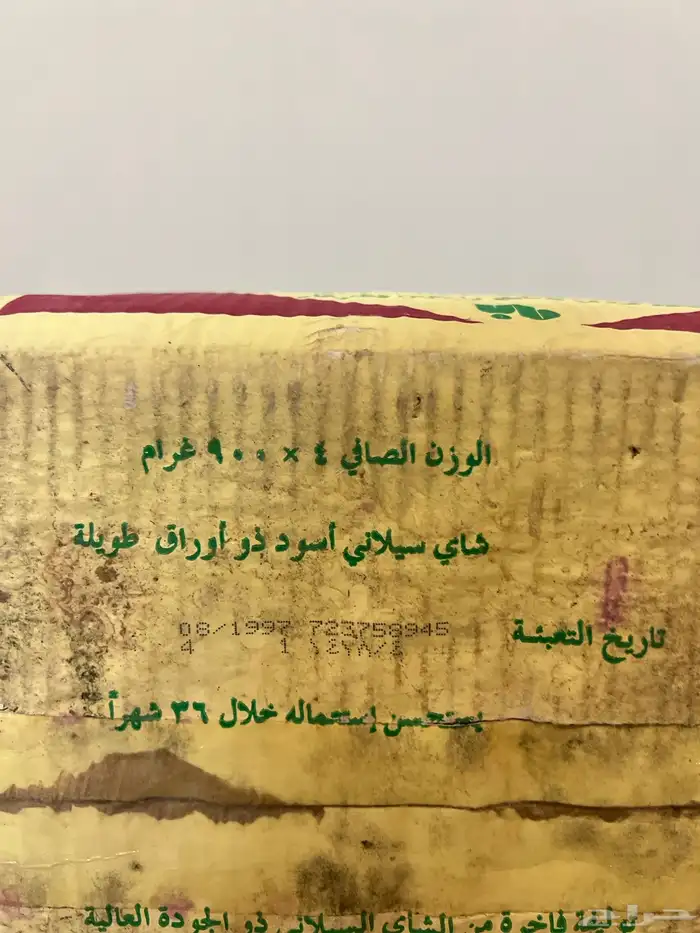 الوزن الصافي ٤ × ٩٠٠ غرام
شاي سيلاني أسود ذو أوراق طويلة
تاريخ التعبئة 08/1997 723758945
4 1 ١٤١٨/٤
يستحسن إستعماله خلال ٣٦ شهراً
توليفة فاخرة من الشاي السيلاني ذو الجودة العالية
حراج